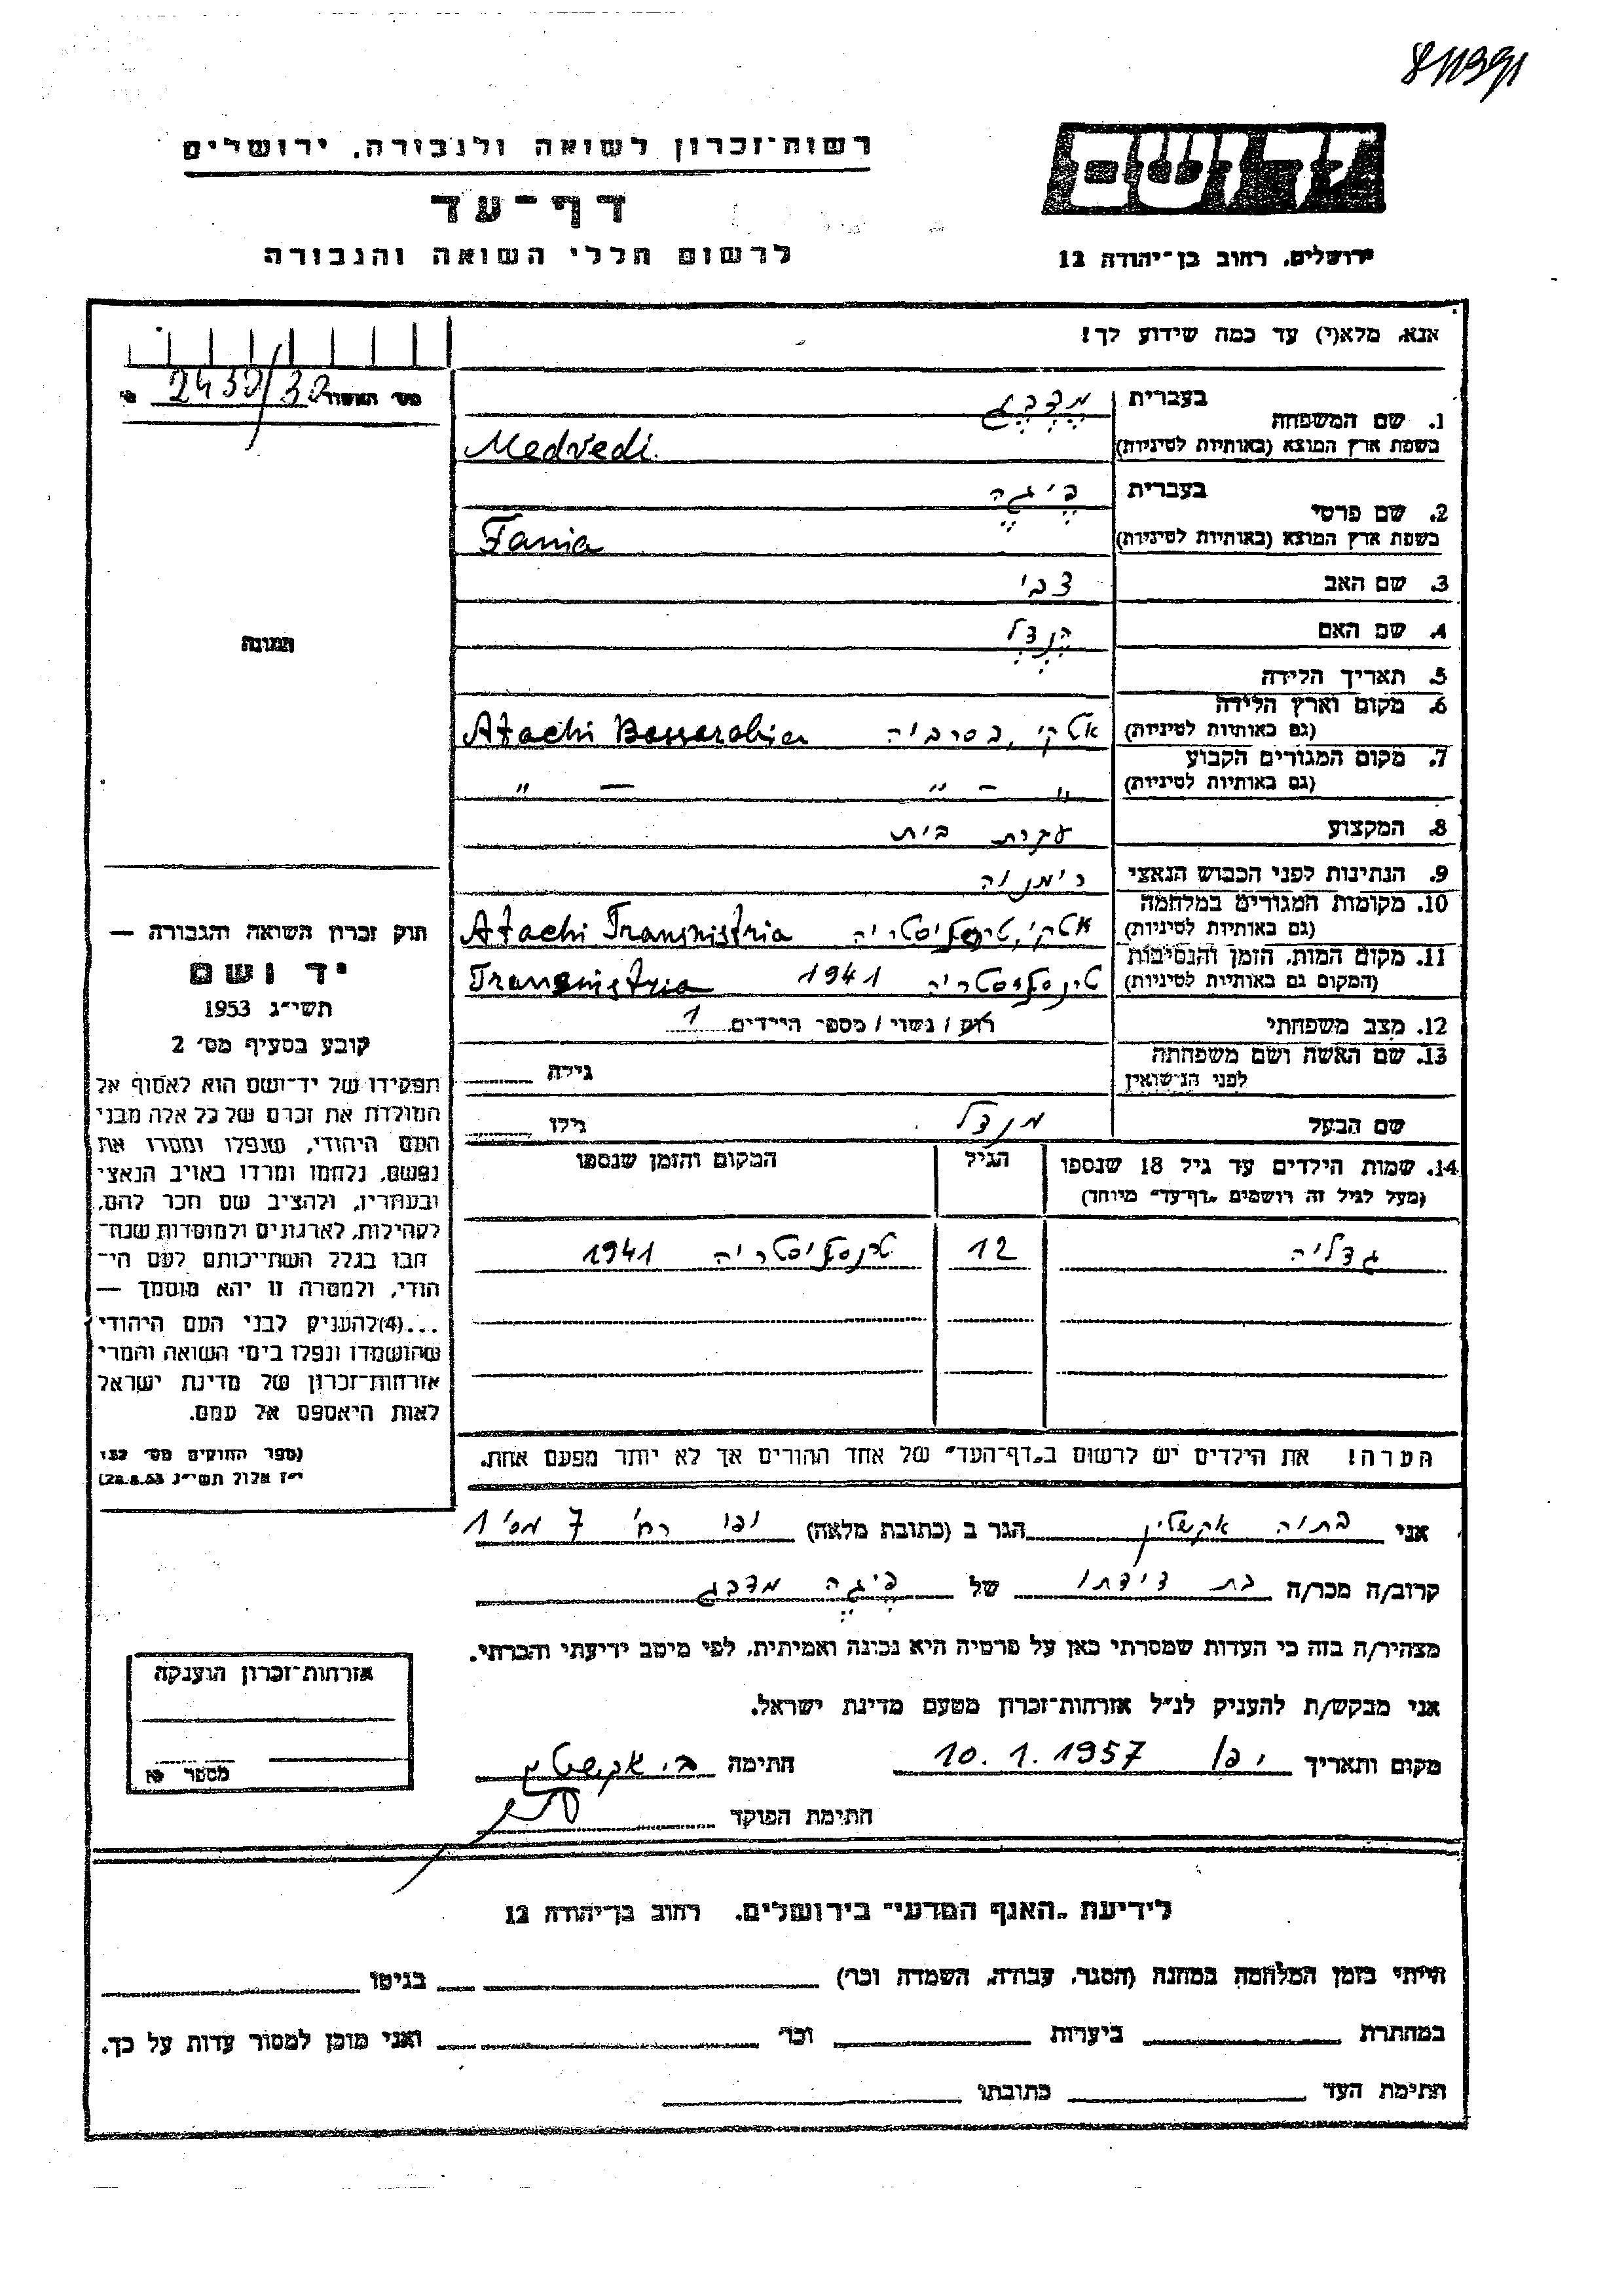 811391
רשות־זכרון לשואה ולגבורה, ירושלים
דף־עד
לרשום חללי השואה והגבורה
יד ושם
ירושלים, רחוב בן־יהודה 12
אנא, מלא(י) עד כמה שידוע לך!
מס׳ האשור 2430/30
1. שם המשפחה בעברית
בשפת ארץ המוצא (באותיות לטיניות) Medvedi
2. שם פרטי בעברית פייגה
בשפת ארץ המוצא (באותיות לטיניות) Fania
3. שם האב צבי
4. שם האם הנדל
5. תאריך הלידה
6. מקום וארץ הלידה
(גם באותיות לטיניות) אטקי, בסרביה Atachi Bessarabia
7. מקום המגורים הקבוע
(גם באותיות לטיניות) " — " — "
8. המקצוע עקרת בית
9. הנתינות לפני הכבוש הנאצי
10. מקומות המגורים במלחמה
(גם באותיות לטיניות) אטקי, טרנסניסטריה Atachi Transnistria
11. מקום המות, הזמן והנסיבות
(המקום גם באותיות לטיניות) טרנסניסטריה 1941 Transnistria
12. מצב משפחתי רוק / נשוי / מספר הילדים 1
13. שם האשה ושם משפחתה
לפני הנישואין גילה
שם הבעל מנדל גילו
14. שמות הילדים עד גיל 18 שנספו הגיל המקום והזמן שנספו
(מעל לגיל זה רושמים „דף־עד" מיוחד)
גדליה 12 טרנסניסטריה 1941
הערה! את הילדים יש לרשום ב„דף־העד" של אחד ההורים אך לא יותר מפעם אחת.
תמונה
חוק זכרון השואה והגבורה —
יד ושם
תשי״ג 1953
קובע בסעיף מס׳ 2
תפקידו של יד־ושם הוא לאסוף אל
המולדת את זכרם של כל אלה מבני
העם היהודי, שנפלו ומסרו את
נפשם, נלחמו ומרדו באויב הנאצי
ובעוזריו, ולהציב שם וזכר להם,
לקהילות, לארגונים ולמוסדות שנח־
רבו בגלל השתייכותם לעם הי־
הודי, ולמטרה זו יהא מוסמך —
...(4) להעניק לבני העם היהודי
שהושמדו ונפלו בימי השואה והמרי
אזרחות־זכרון של מדינת ישראל
לאות היאספם אל עמם.
(ספר החוקים מס׳ 132
י״ז אלול תשי״ג 28.8.53)
אני בתיה הגר ב (כתובת מלאה) יפו רח׳ 7 מס׳ 1
קרוב/ה מכר/ה בת דידתו של פייגה
מצהיר/ה בזה כי העדות שמסרתי כאן על פרטיה היא נכונה ואמיתית, לפי מיטב ידיעתי והכרתי.
אני מבקש/ת להעניק לנ״ל אזרחות־זכרון מטעם מדינת ישראל.
מקום ותאריך יפו 10.1.1957 חתימה
חתימת הפוקד
אזרחות־זכרון הוענקה
מספר
לידיעת „האגף המדעי" בירושלים, רחוב בן־יהודה 12
הייתי בזמן המלחמה במחנה (הסגר, עבודה, השמדה וכו׳) בגיטו
במחתרת ביערות וכו׳ ואני מוכן למסור עדות על כך.
חתימת העד כתובתו